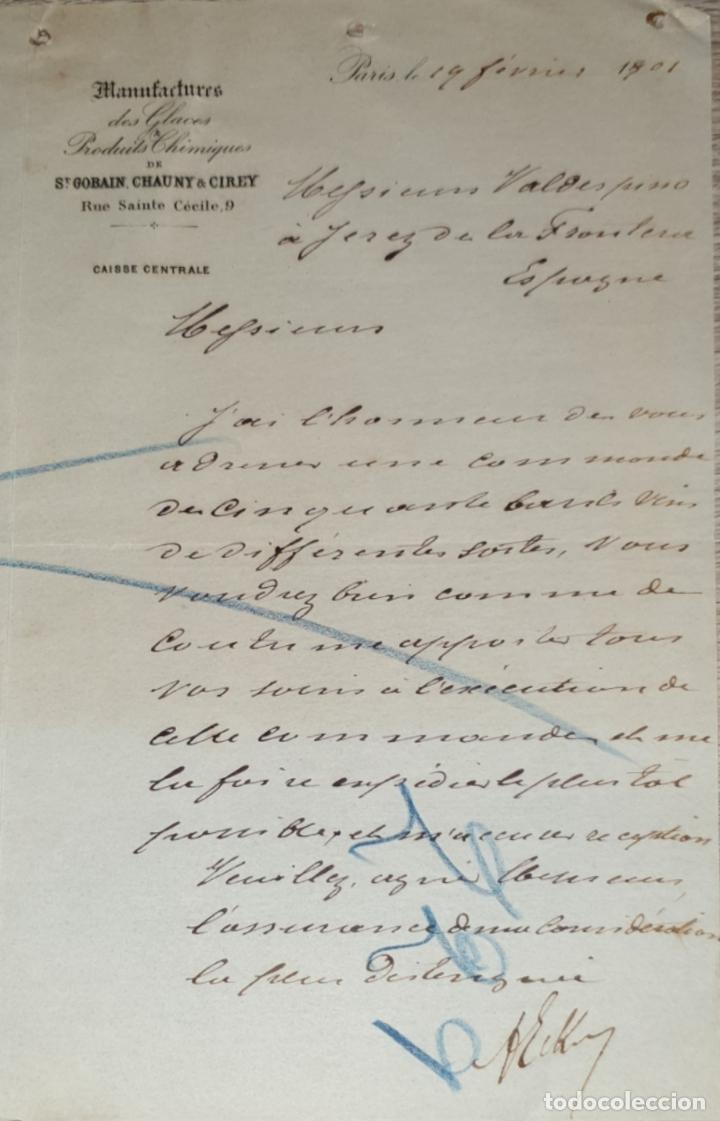 Manufactures
des Glaces
&
Produits Chimiques
DE
ST GOBAIN, CHAUNY & CIREY
Rue Sainte Cécile, 9
CAISSE CENTRALE
Paris, le 19 février 1901
Messieurs Valdespino
à Jerez de la Frontera
Espagne
Messieurs
J'ai l'honneur de vous
adresser une commande
de cinquante barils vins
de différentes sortes, vous
voudrez bien comme de
coutume apporter tous
vos soins à l'exécution de
cette commande et me
la faire expédier le plus tôt
possible, et m'accuser reception
Veuillez, agréer Messieurs,
l'assurance de ma considération
la plus distinguée
todocoleccion